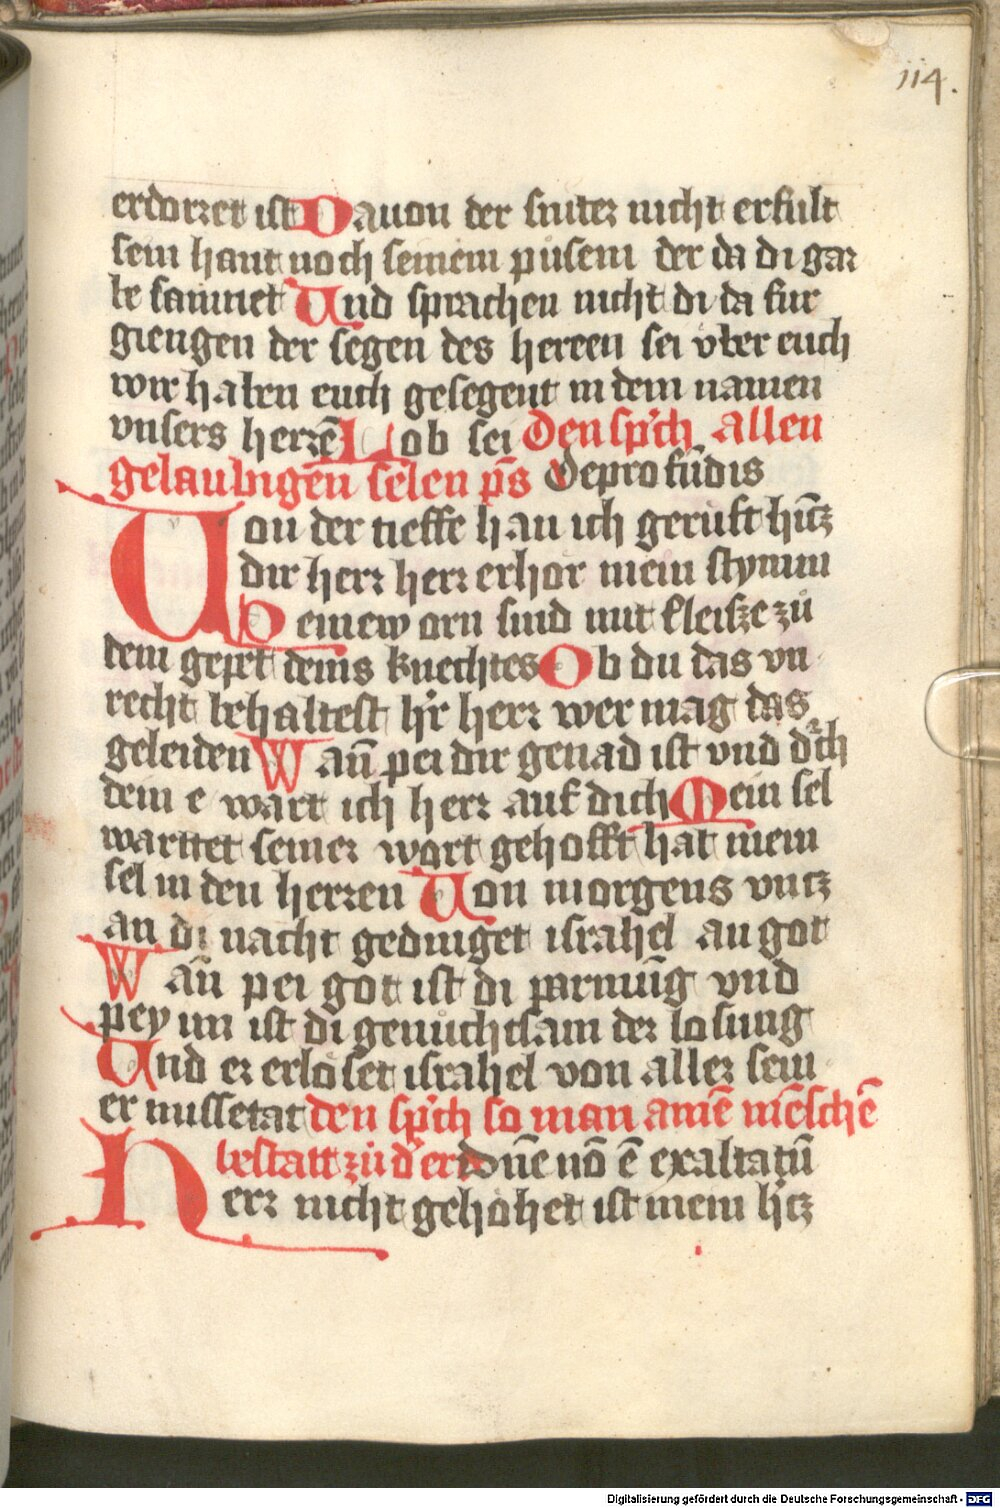 114.
erdorret ist Dauon der sniter nicht erfult
sein hant noch seinem půsem der da di gar
be samnet Und sprachen nicht di da fur
giengen der segen des herren sei vͤber euch
wir haben euch gesegent in dem namen
vnsers herrē Lob sei Den sp'ch allen
gelaubigen selen ps De profūdis
Uon der tieffe han ich geruft hītz
dir herr herr erhör mein stymm
Deinew orn sind mit fleisze zů
dem gepet deins knechtes Ob du das vn
recht behaltest h'r herr wer mag das
geleiden Wañ pei dir genad ist vnd d'ch
dein e wart ich herr auf dich Mein sel
warttet seiner wort gehofft hat mein
sel in den herren Uon morgens vntz
an di nacht gedinget israhel an got
Wañ pei got ist di parmūg vnd
pey im ist di genůchtsam der losung
Und er erlöset israhel von aller sein
er missetat den sp'ch so man ainē mēschē
bestatt zů d' erd Dñe nō ē exaltatū
Herr nicht gehöhet ist mein h'tz
Digitalisierung gefördert durch die Deutsche Forschungsgemeinschaft - DFG